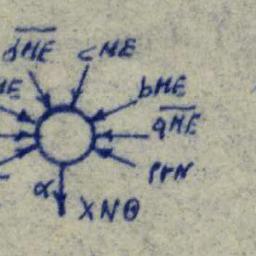 d̅M̅E̅ cME
ME bME
q̅M̅E̅
PrN
α XNΘ